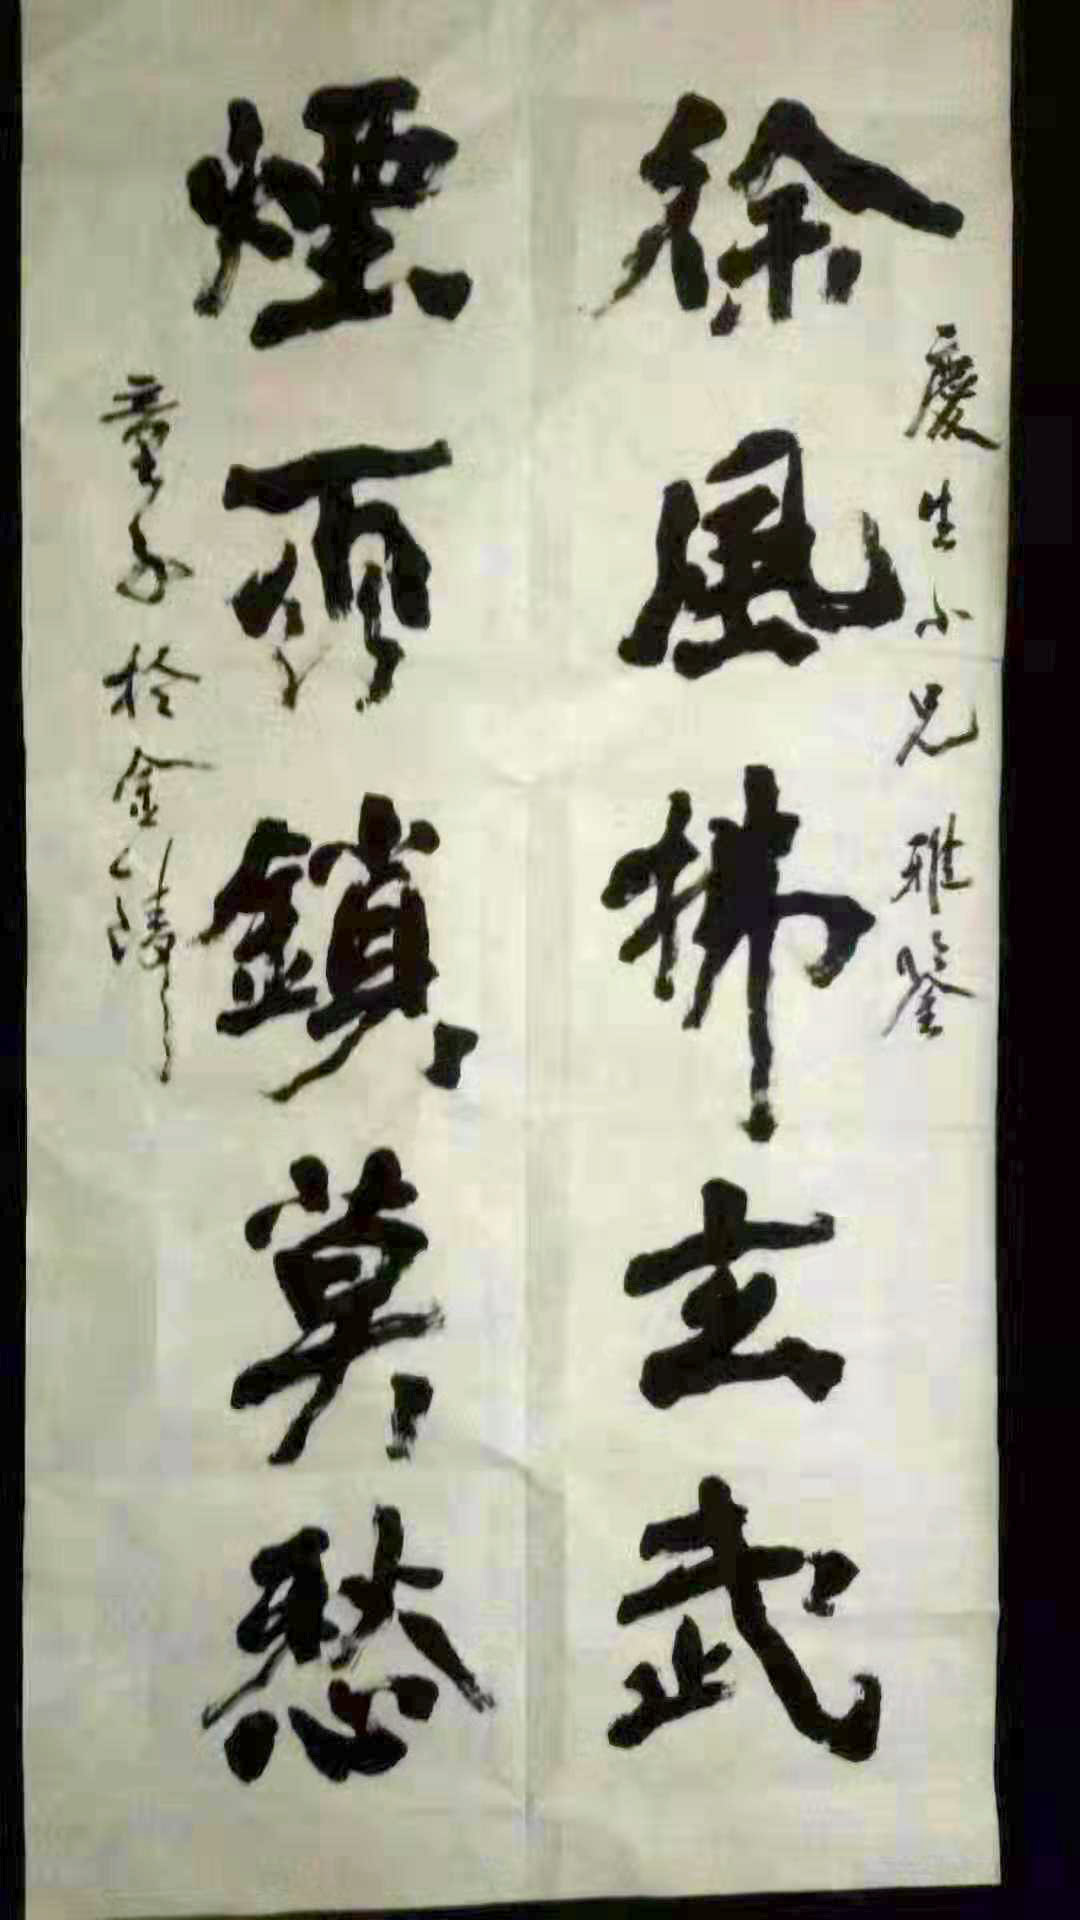 慶生小兄雅鑒
徐風拂玄武
煙雨鎖莫愁
童子於金陵